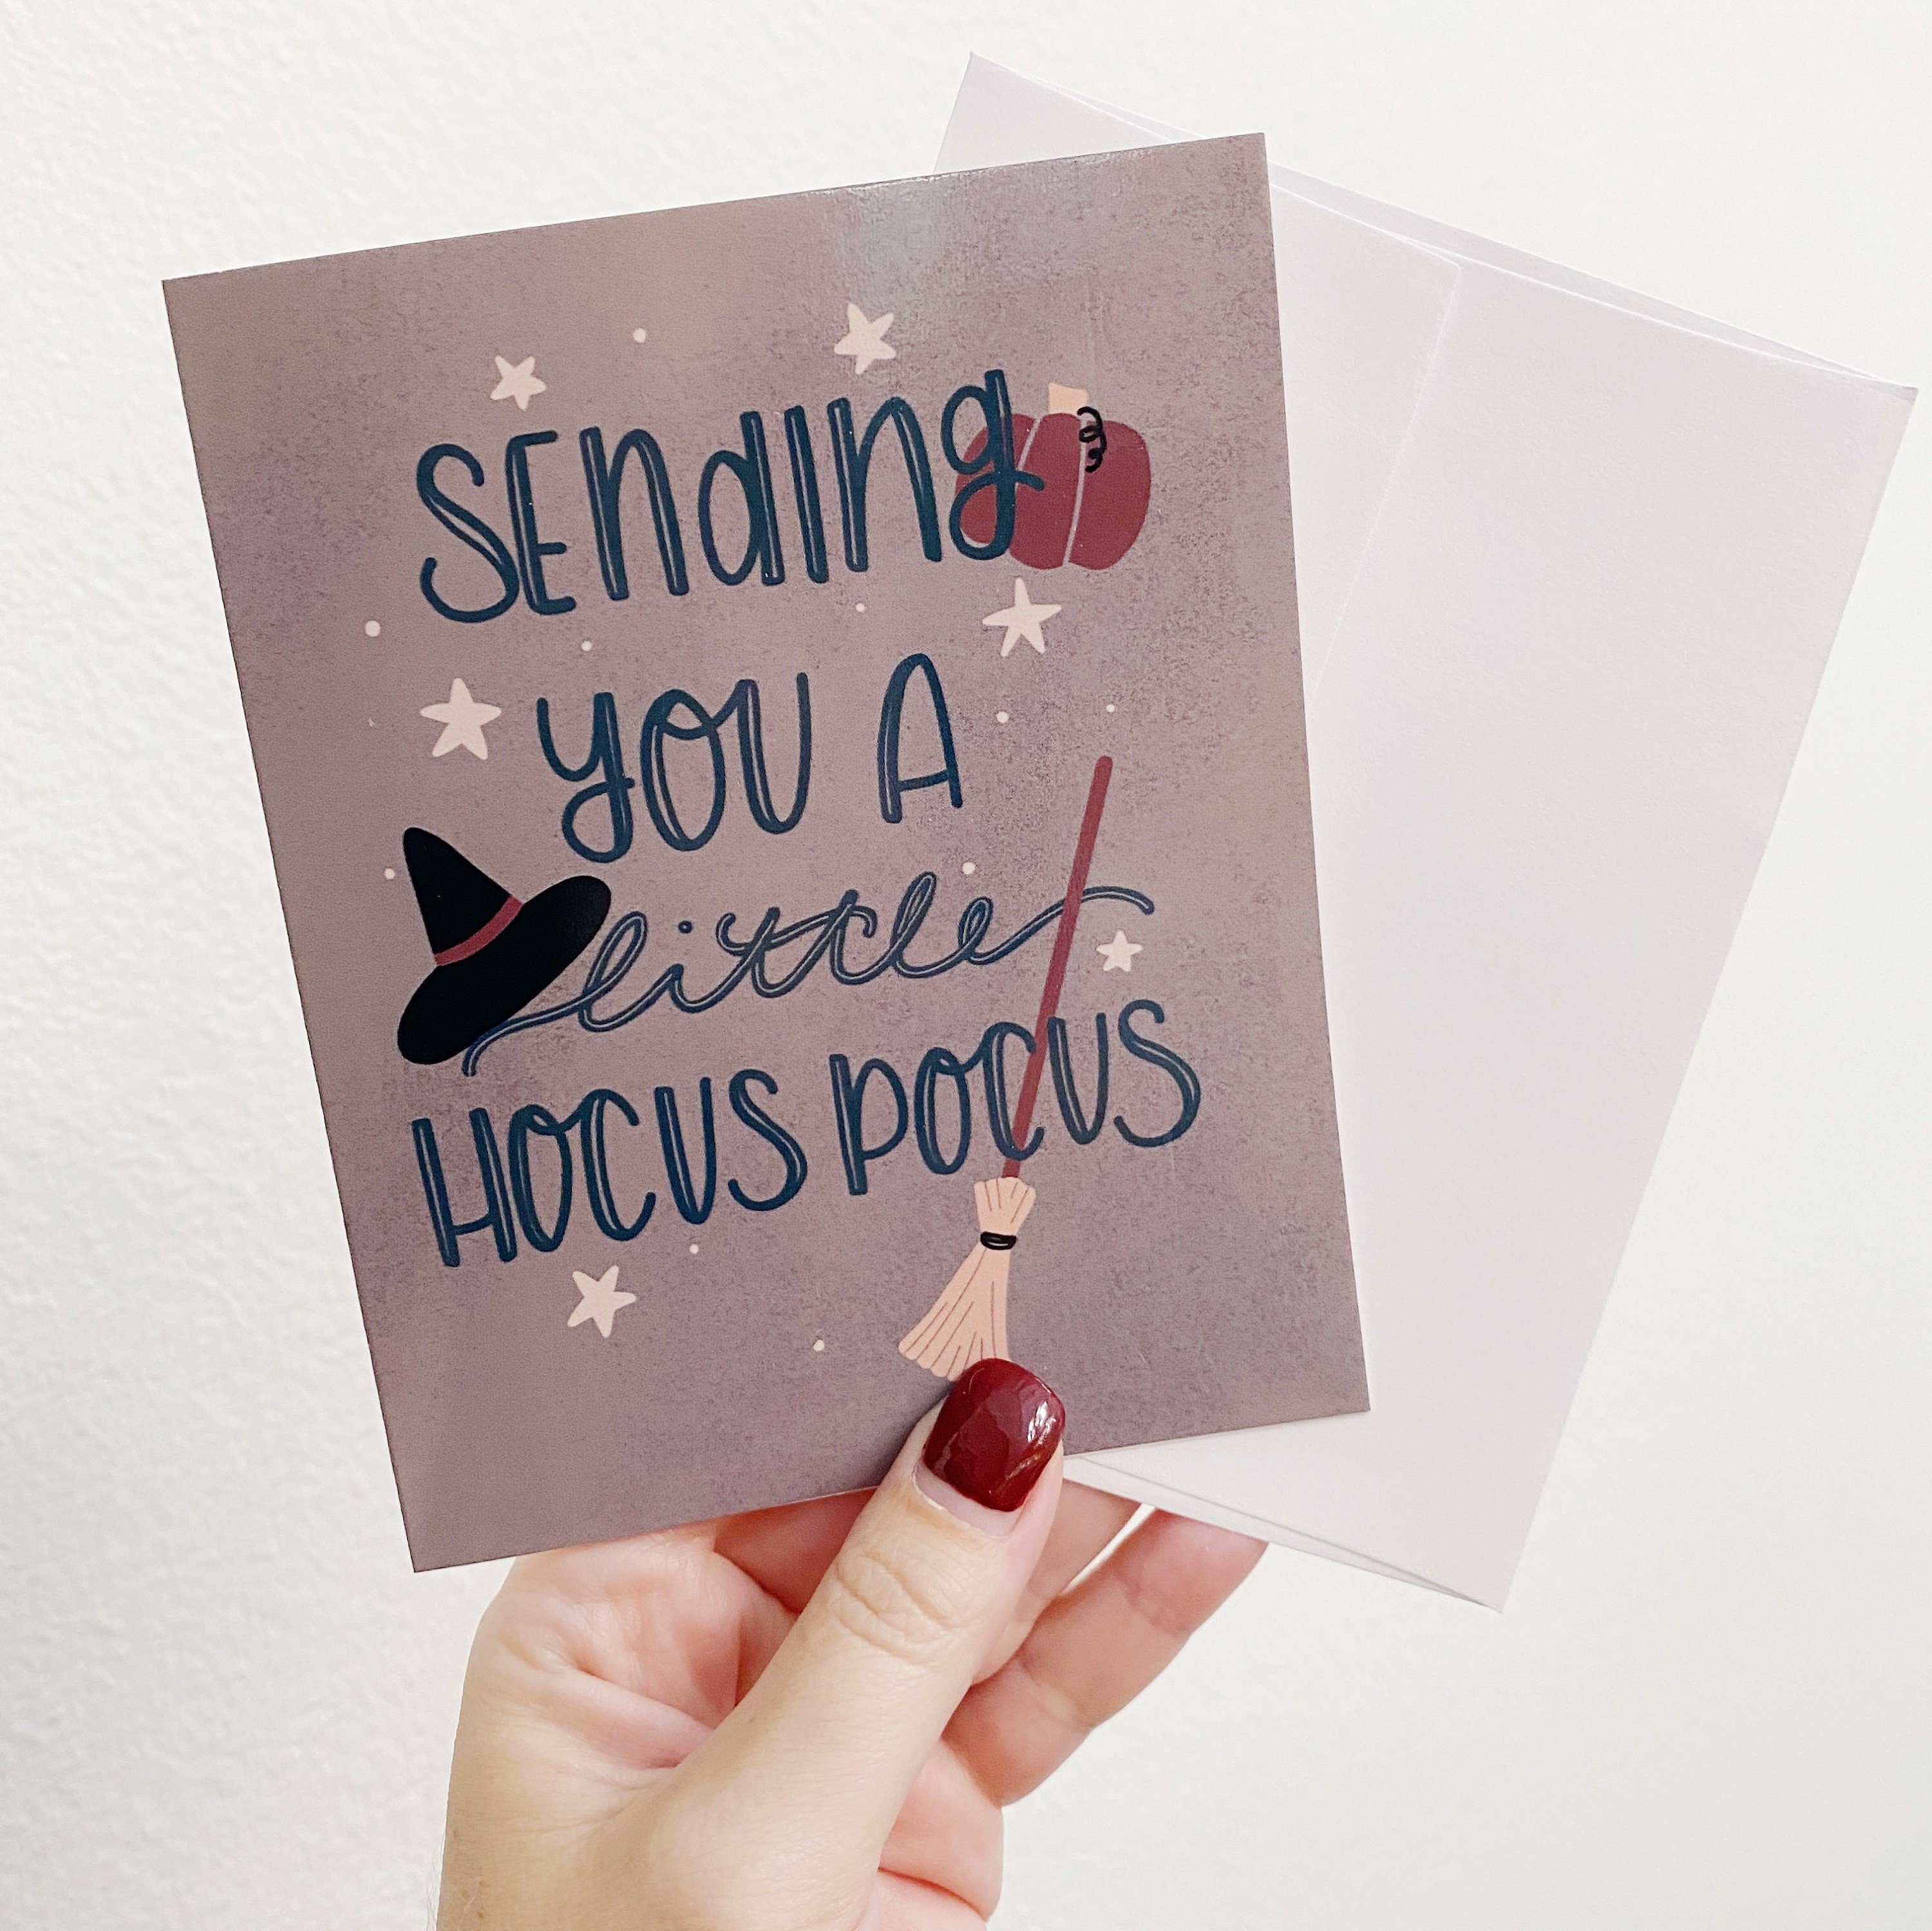 SEnding
you A
little
HOCUS POCUS